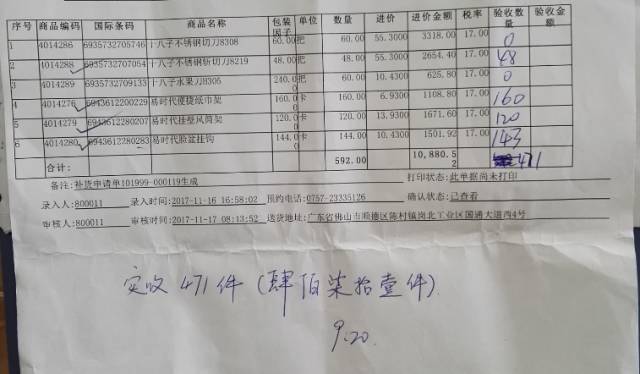 序号 商品编码 国际条码 商品名称 包装因子 单位 数量 进价 进价金额 税率 验收数量 验收金额
1 4014286 6935732705746 十八子不锈钢切刀8308 60.00 把 60.00 55.3000 3318.00 17.00 0
2 4014288 6935732707054 十八子不锈钢斩切刀8219 48.00 把 48.00 55.3000 2654.40 17.00 48
3 4014289 6935732709133 十八子水果刀8305 240.00 把 60.00 10.4300 625.80 17.00 0
4 4014276 6943612200229 易时代便捷纸巾架 160.00 卡 160.00 6.9300 1108.80 17.00 160
5 4014279 6943612280207 易时代挂壁风筒架 120.00 卡 120.00 13.9300 1671.60 17.00 120
6 4014280 6943612280283 易时代脸盆挂钩 144.00 卡 144.00 10.4300 1501.92 17.00 143
合计: 592.00 10,880.52 471
备注:补货申请单101999-000119生成 打印状态:此单据尚未打印
录入人:800011 录入时间:2017-11-16 16:58:02 预约电话:0757-23335126 确认状态:已查看
审核人:800011 审核时间:2017-11-17 08:13:52 送货地址:广东省佛山市顺德区陈村镇岗北工业区国通大道西4号
实收 471 件 (肆佰柒拾壹件).
9:20